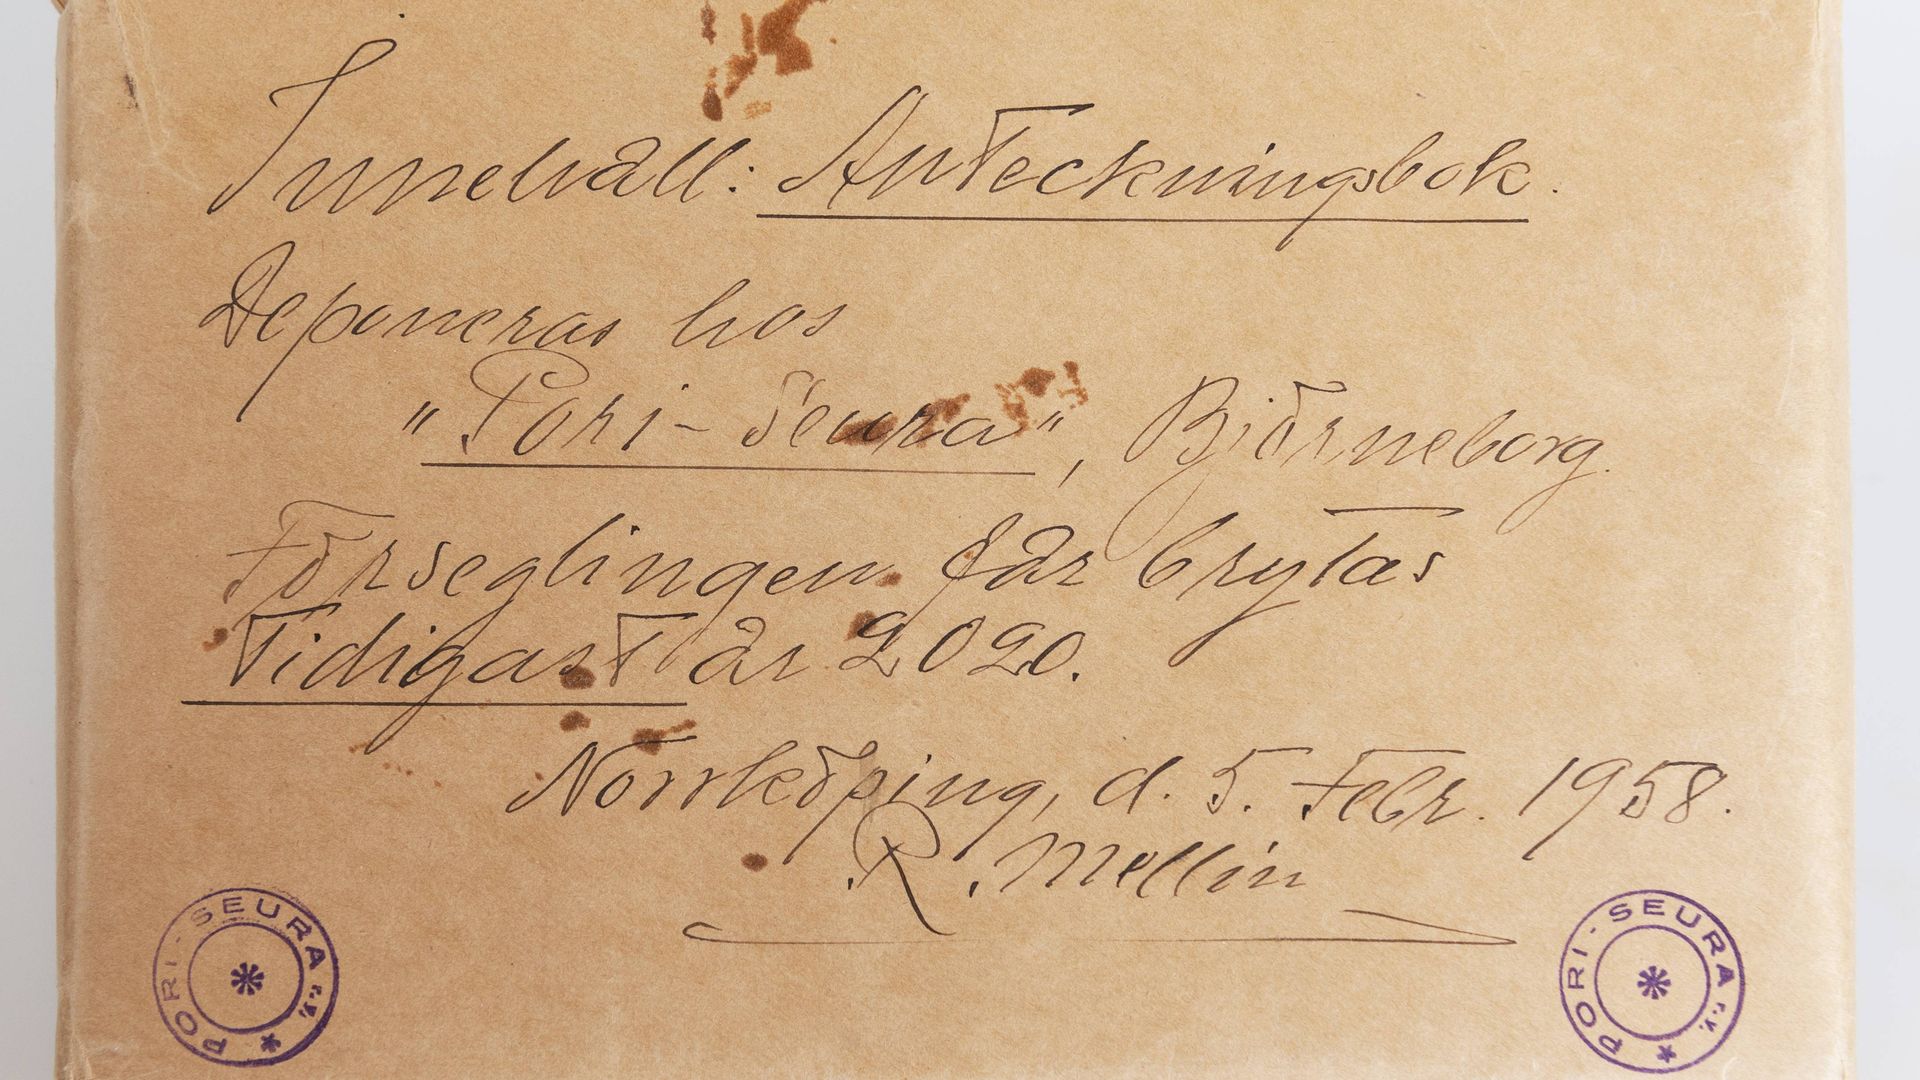 Innehåll: Anteckningsbok.
Deponeras hos
"Pori-Seura", Björneborg.
Förseglingen får brytas
tidigast år 2020.
Norrköping, d. 5. Febr. 1958.
R. Mellin
PORI-SEURA r.y. *
PORI-SEURA r.y. *